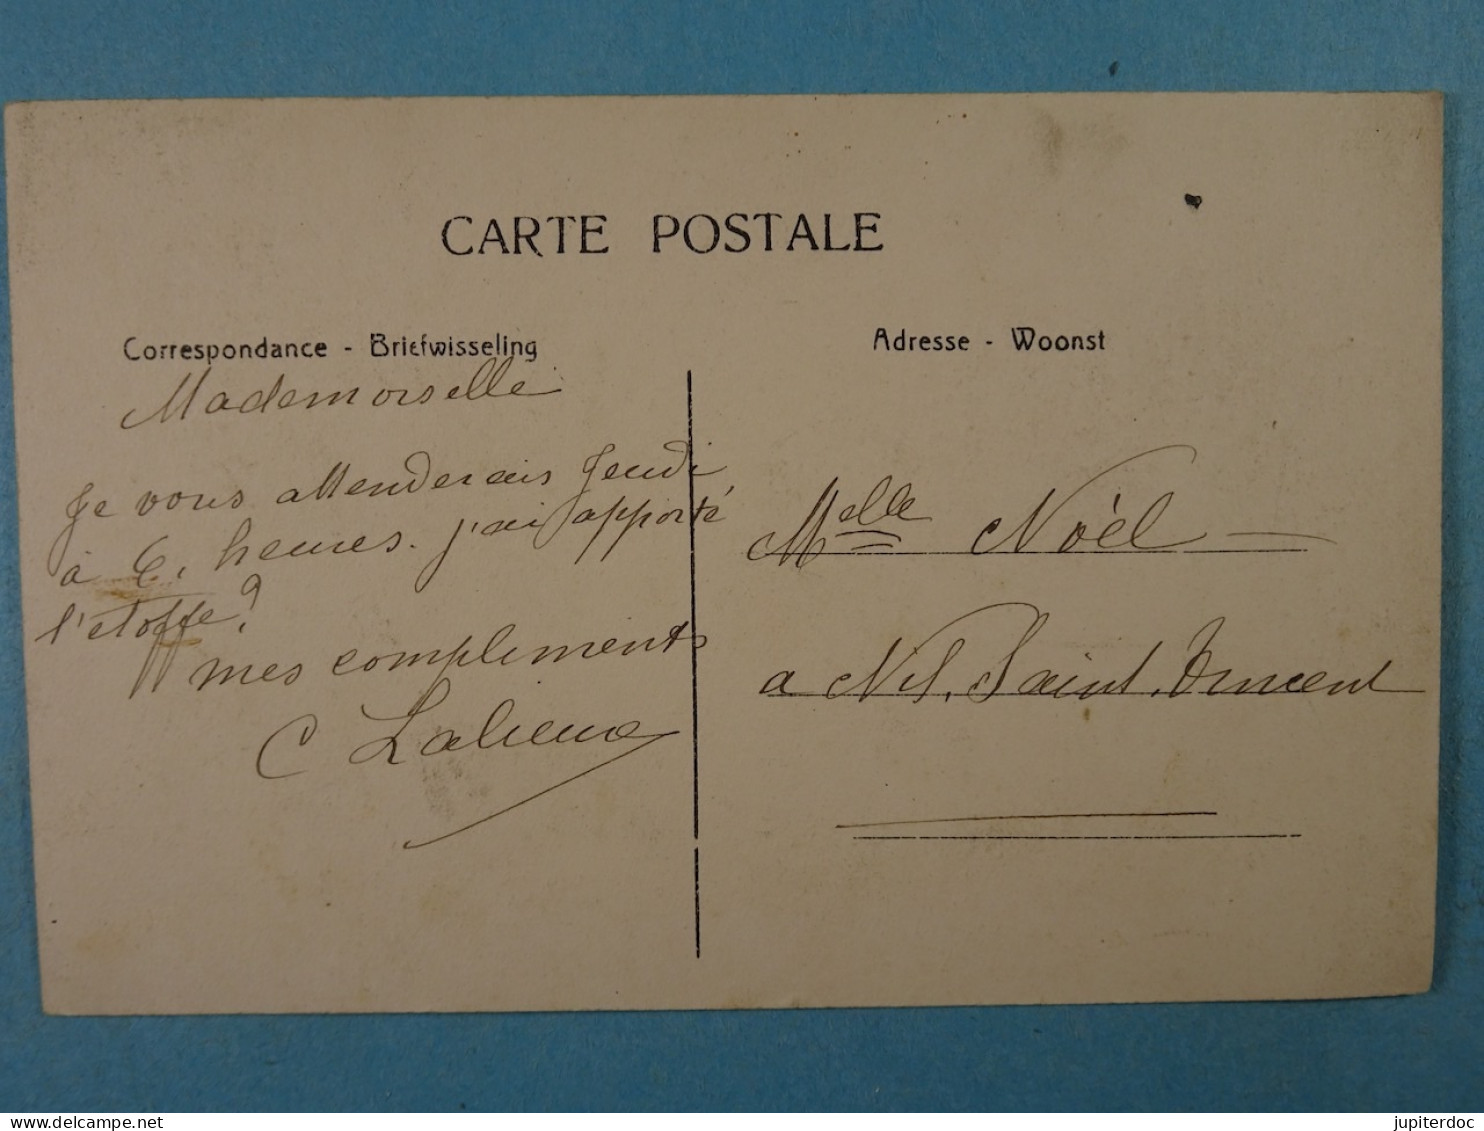 CARTE POSTALE
Correspondance - Briefwisseling
Mademoiselle
Je vous attenderais Jeudi
à 6, heures. j'ai apporté
l'etoffe?
mes compliments
C Lalieux
Adresse - Woonst
Melle Noèl
a Nil. Saint. Vincent
delcampe.net
jupiterdoc